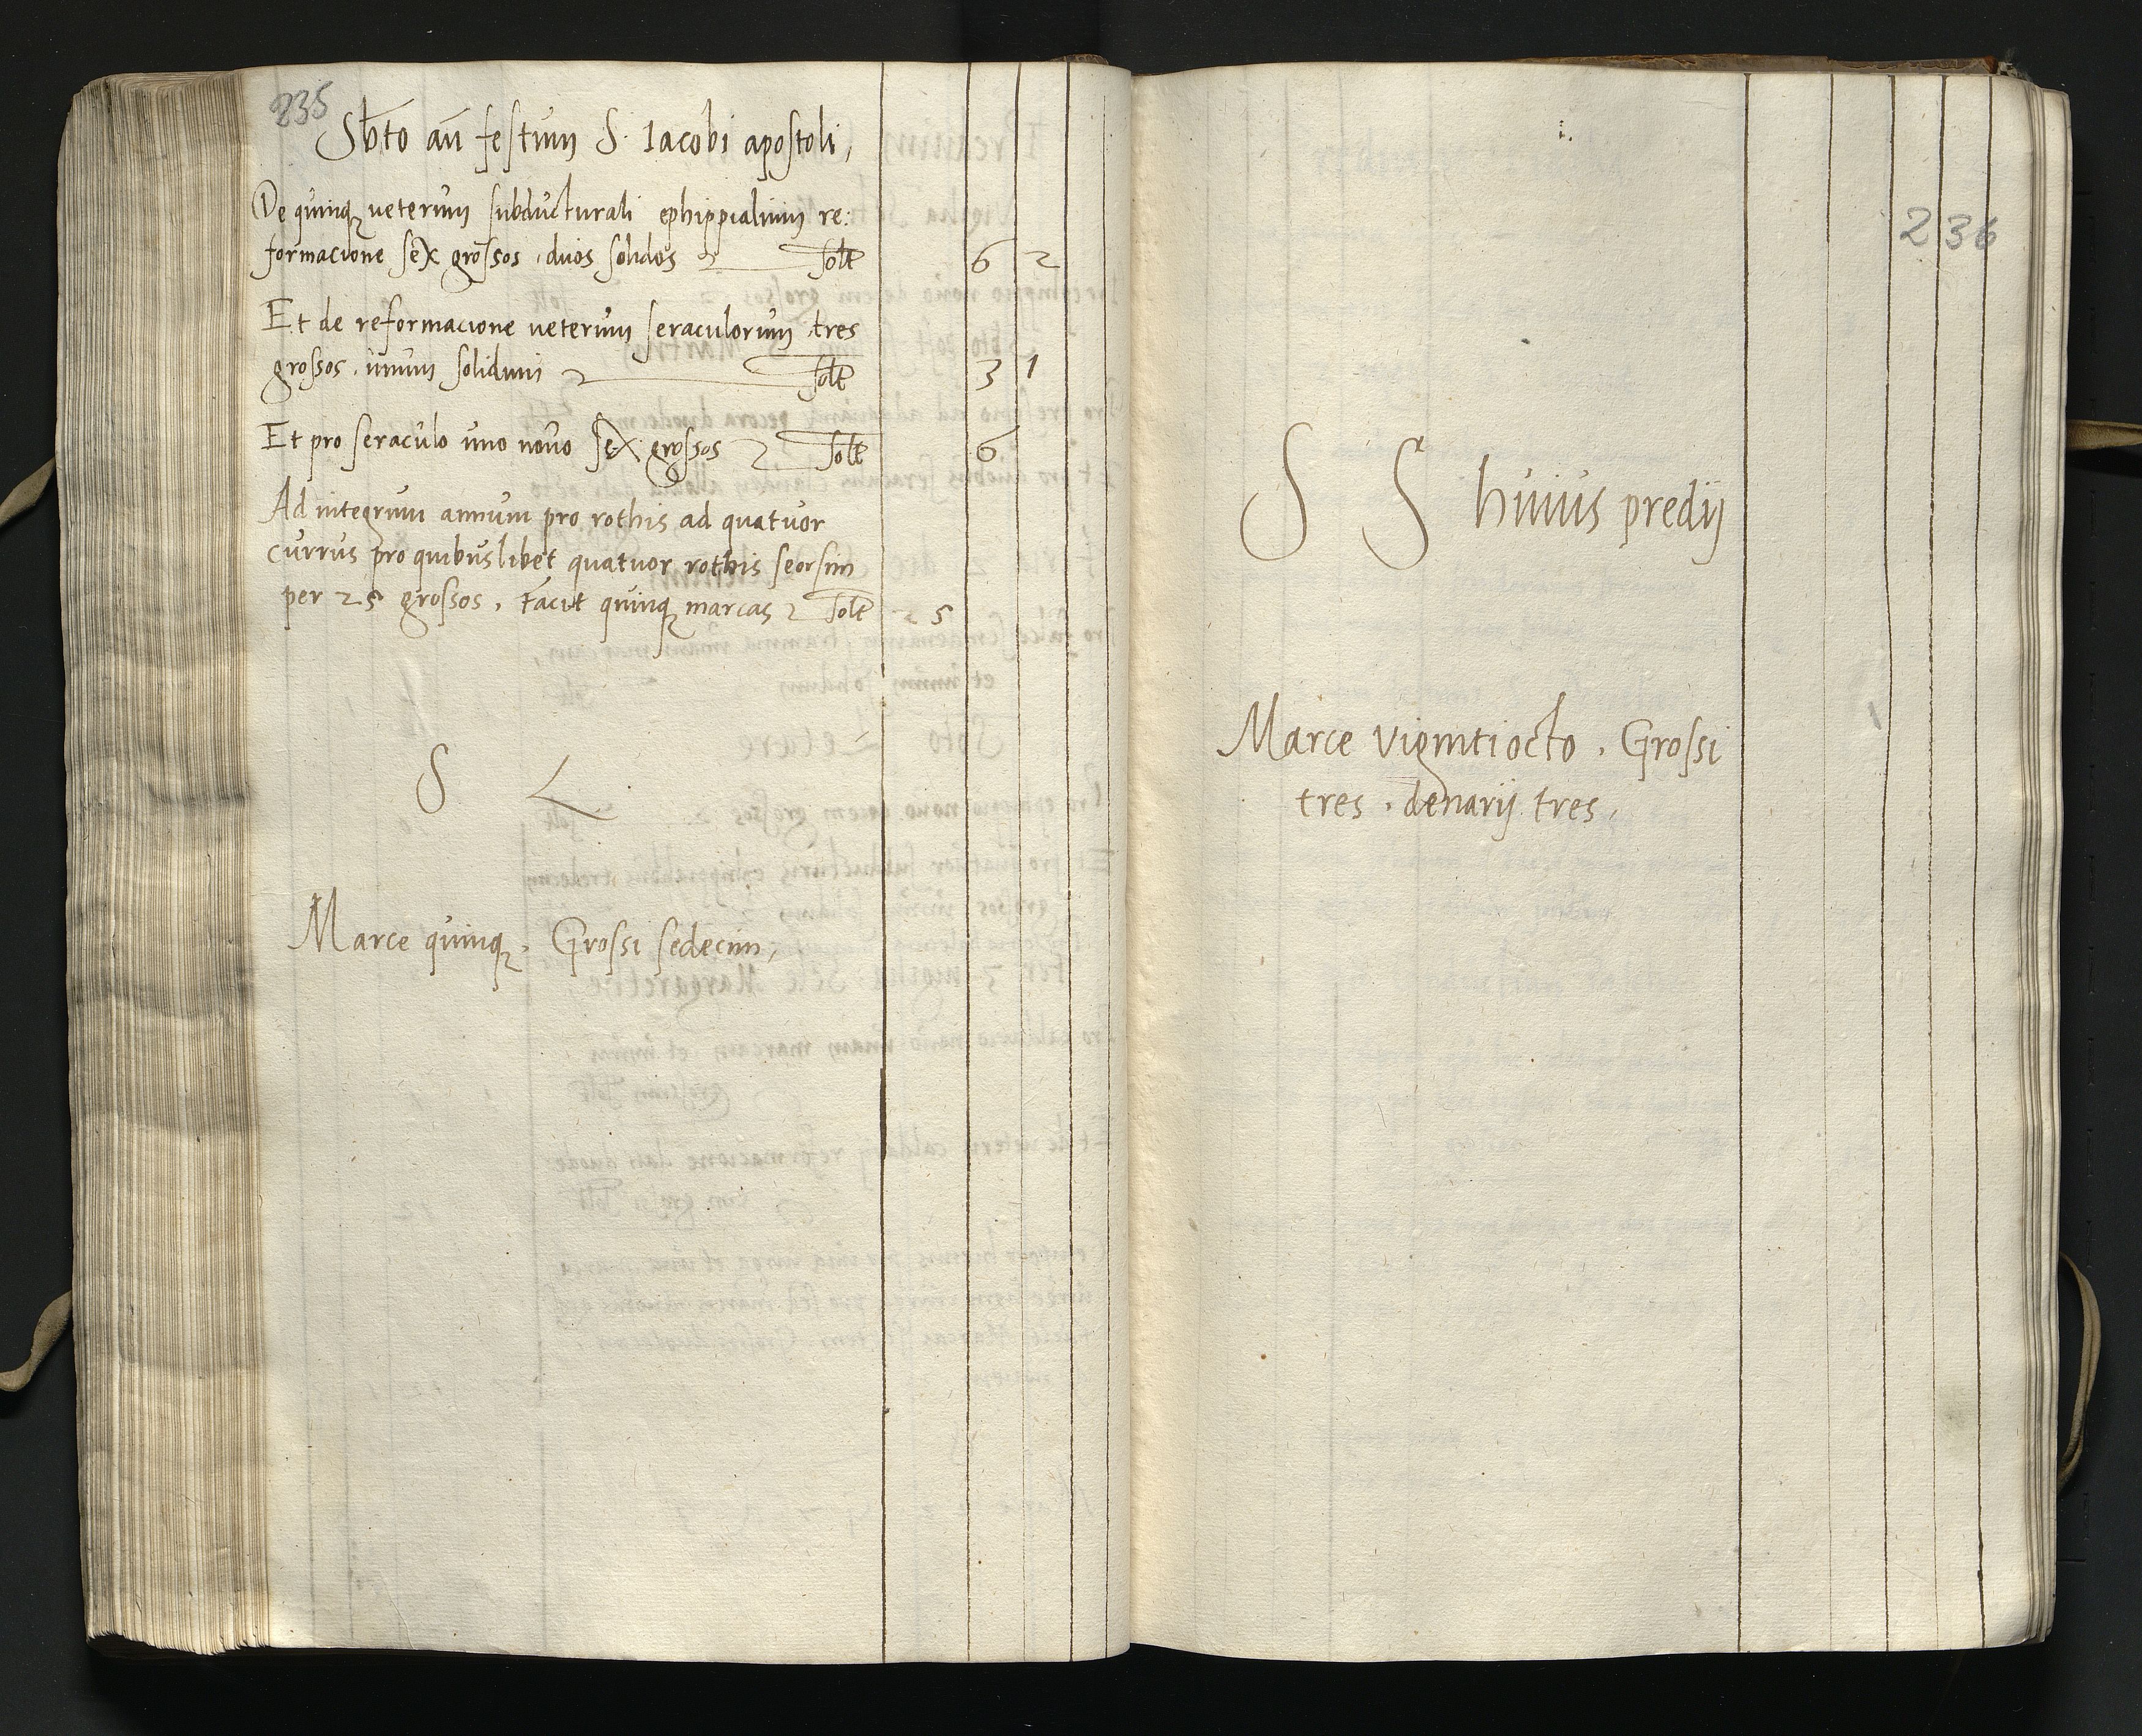 235
Sbto añ festum S. Iacobi apostoli,
De quinq veterum subducturali ephippialium re:
formacione sex grossos. duos solidos solt 6 2
Et de reformacione veterum seraculorum tres
grossos. unum solidum solt 3 1
Et pro seraculo uno novo sex grossos solt 6
Ad integrum annum pro rothis ad quatuor
currus pro quibuslibet quatuor rothis seorsim
per 25 grossos. facit quinq marcas solt 5
S L
Marce quinq. Grossi sedecim,
236
S S huius predij
Marce vigintiocto. Grossi
tres. denarij tres,